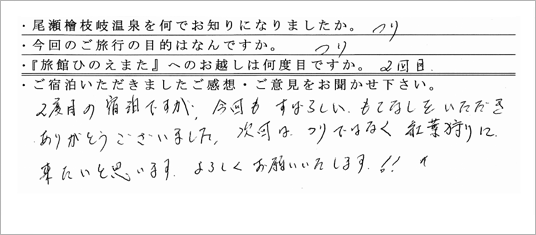 ・尾瀬檜枝岐温泉を何でお知りになりましたか。 つり
・今回のご旅行の目的はなんですか。 つり
・『旅館ひのえまた』へのお越しは何度目ですか。 2回目
・ご宿泊いただきましたご感想・ご意見をお聞かせ下さい。
2度目の宿泊ですが、今回も すばらしい もてなしをいただき
ありがとうございました。次回は つりではなく 紅葉狩りに
来たいと思います。よろしくお願いいたします!!